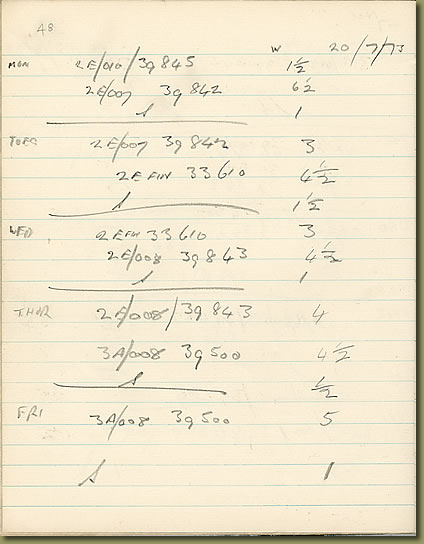 48
W 20/7/73
MON 2E/010/39845 1½
2E/007 39842 6½
S 1
TUES 2E/007 39842 3
2E FIN 33610 4½
S 1½
WED 2E FIN 33610 3
2E/008 39843 4½
S 1
THUR 2E/008/39843 4
3A/008 39500 4½
S ½
FRI 3A/008 39500 5
S 1